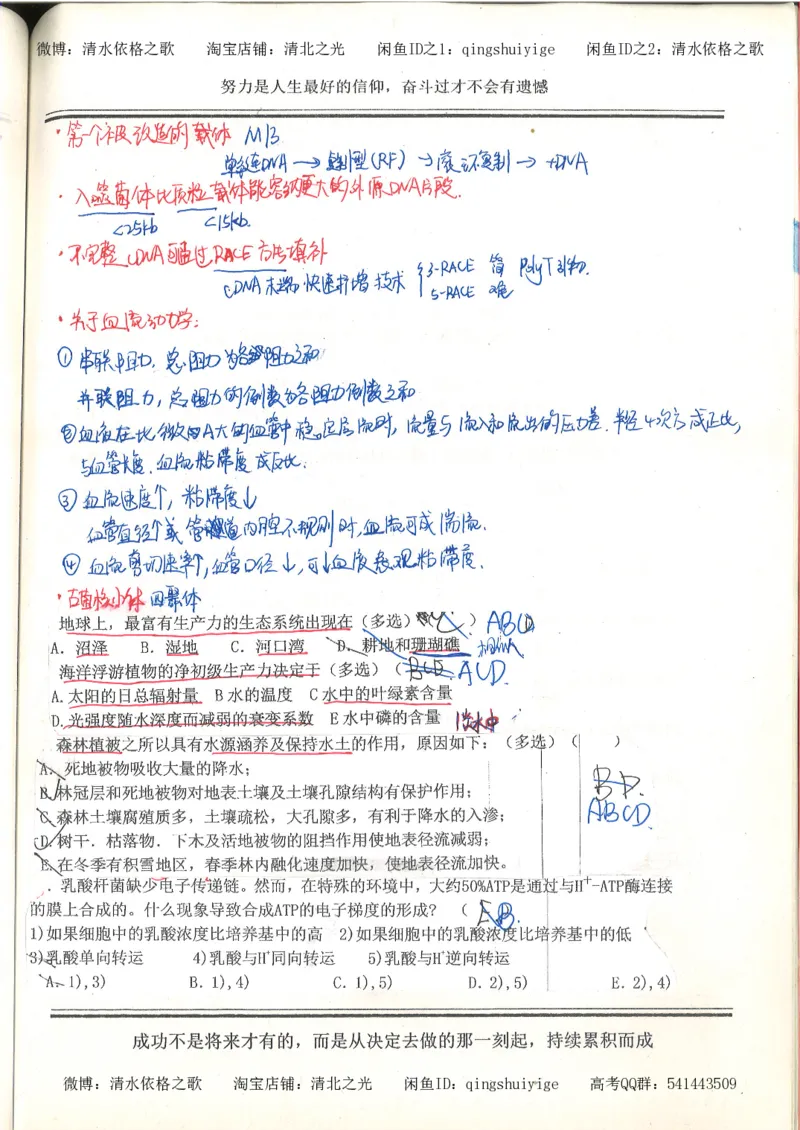 微博：清水依格之歌 淘宝店铺：清北之光 闲鱼ID之1：qingshuiyige 闲鱼ID之2：清水依格之歌
努力是人生最好的信仰，奋斗过才不会有遗憾
·第一个被改造的载体 M13
单链DNA → 复制型(RF) → 滚环复制 → +DNA
·入噬菌体比质粒载体能容纳更大的外源DNA片段.
<25kb <15kb.
·不完整cDNA可通过RACE方法填补
cDNA末端快速扩增技术 { 3-RACE 简 PolyT引物.
5-RACE 难
·关于血流动力学：
①串联阻力，总阻力为各阻力之和
并联阻力，总阻力的倒数为各阻力倒数之和
②血液在比微A大的血管中稳定层流时，流量与流入和流出的压力差.半径4次方成正比，
与血管长度.血流粘滞度成反比.
③血流速度↑，粘滞度↓
血管直径↑或管道内腔不规则时,血流可成湍流.
④血流剪切速率↑,血管口径↓,可↓血液表现粘滞度.
·古菌核小体 四聚体
地球上，最富有生产力的生态系统出现在（多选）（ ） ABCD
A．沼泽 B．湿地 C．河口湾 D．耕地和珊瑚礁
海洋浮游植物的净初级生产力决定于（多选）（BCD ACD.
A.太阳的日总辐射量 B 水的温度 C 水中的叶绿素含量
D.光强度随水深度而减弱的衰变系数 E 水中磷的含量 淡水中
森林植被之所以具有水源涵养及保持水土的作用，原因如下：（多选）（ ）
A．死地被物吸收大量的降水；
B．林冠层和死地被物对地表土壤及土壤孔隙结构有保护作用； BD.
C．森林土壤腐殖质多，土壤疏松，大孔隙多，有利于降水的入渗； ABCD.
D．树干．枯落物．下木及活地被物的阻挡作用使地表径流减弱；
E．在冬季有积雪地区，春季林内融化速度加快，使地表径流加快。
．乳酸杆菌缺少电子传递链。然而，在特殊的环境中，大约50%ATP是通过与H⁺-ATP酶连接
的膜上合成的。什么现象导致合成ATP的电子梯度的形成？（ B.
1)如果细胞中的乳酸浓度比培养基中的高 2)如果细胞中的乳酸浓度比培养基中的低
3)乳酸单向转运 4)乳酸与H⁺同向转运 5)乳酸与H⁺逆向转运
A．1),3) B．1),4) C．1),5) D．2),5) E．2),4)
成功不是将来才有的，而是从决定去做的那一刻起，持续累积而成
微博：清水依格之歌 淘宝店铺：清北之光 闲鱼ID：qingshuiyige 高考QQ群：541443509